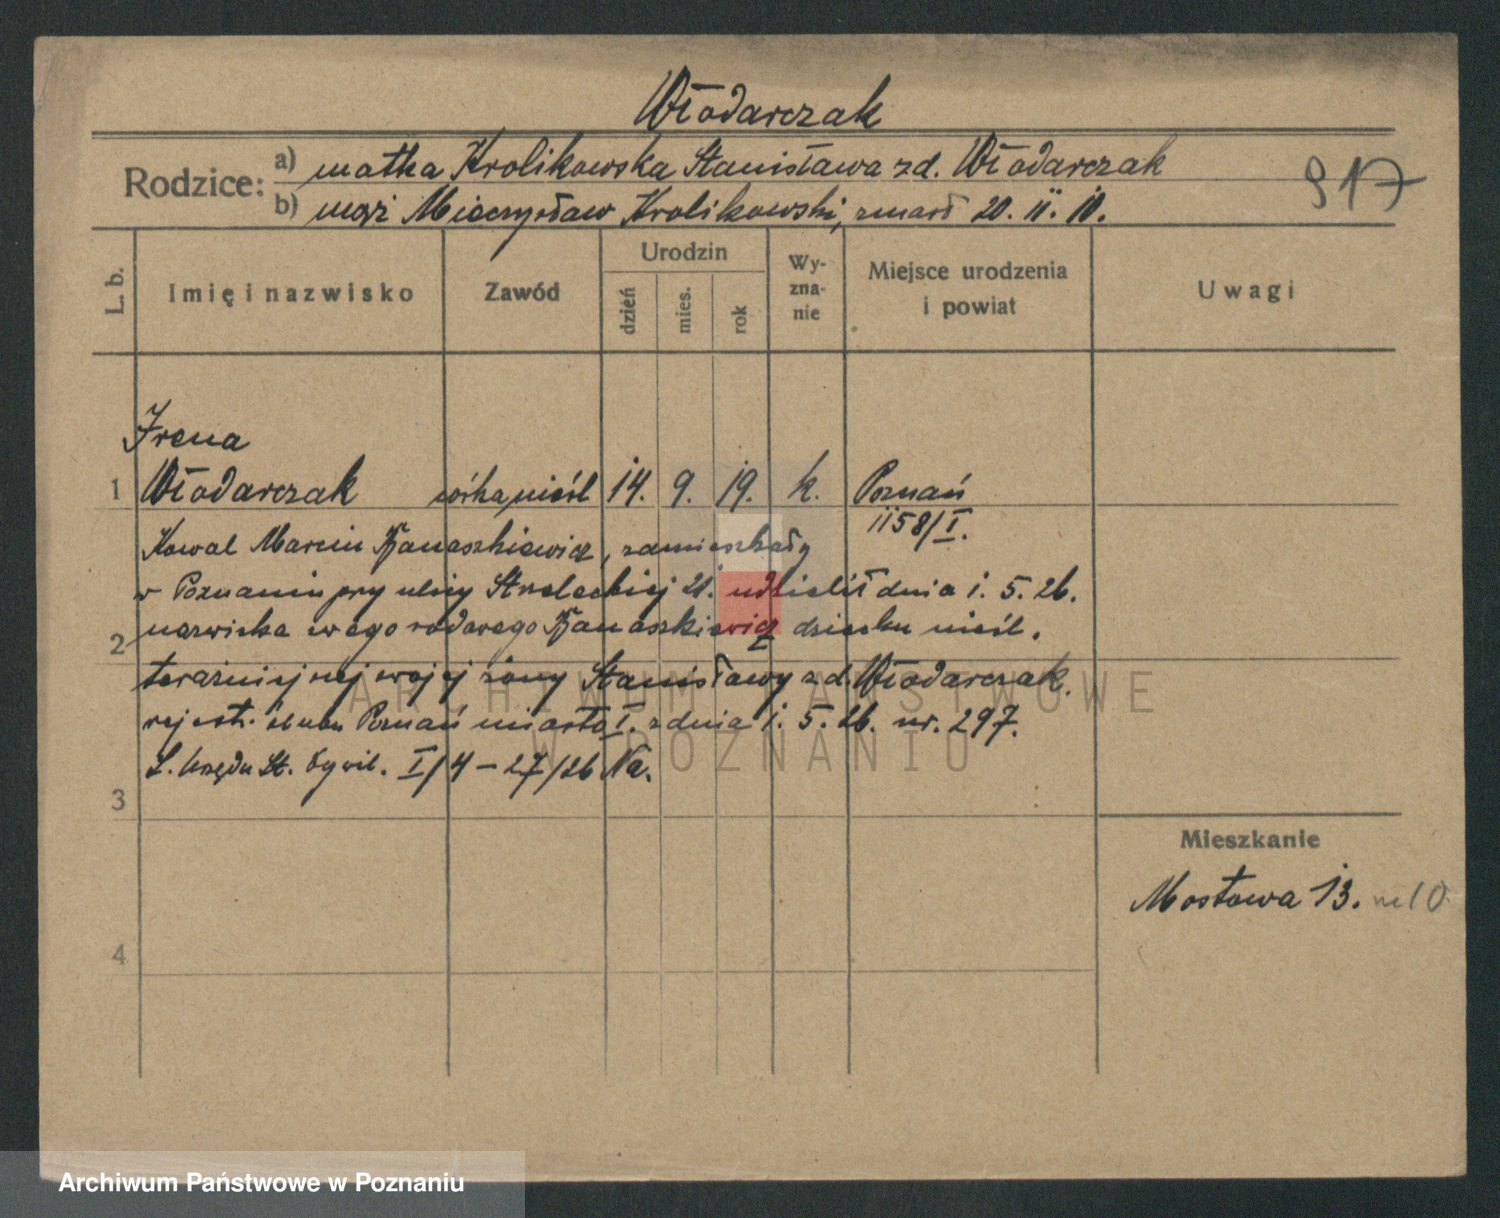 Włodarczak
Rodzice: a) matka Krolikowska Stanisława zd. Włodarczak
b) mąż Mieczysław Krolikowski, zmarł 20. 11. 18.
917
L. b.
Imię i nazwisko
Zawód
Urodzin
dzień
mies.
rok
Wy-
zna-
nie
Miejsce urodzenia
i powiat
Uwagi
Irena
1 Włodarczak córka nieśl 14. 9. 19. k. Poznań
1158/I.
Kowal Marcin Banaszkiewicz, zamieszkały
w Poznaniu przy ulicy Strzeleckiej 21. udzielił dnia 1. 5. 26.
2 nazwiska swego rodowego Banaszkiewicz dziecku nieśl.
teraźniejszej swojej żony Stanisławy zd. Włodarczak.
rejestr. ślubu Poznań miasto I. z dnia 1. 5. 26. nr. 297.
L. Urzędu St. Cywil. I/4-27/26 Na.
3
Mieszkanie
Mostowa 13. m 10
4
ARCHIWUM PAŃSTWOWE
W POZNANIU
Archiwum Państwowe w Poznaniu